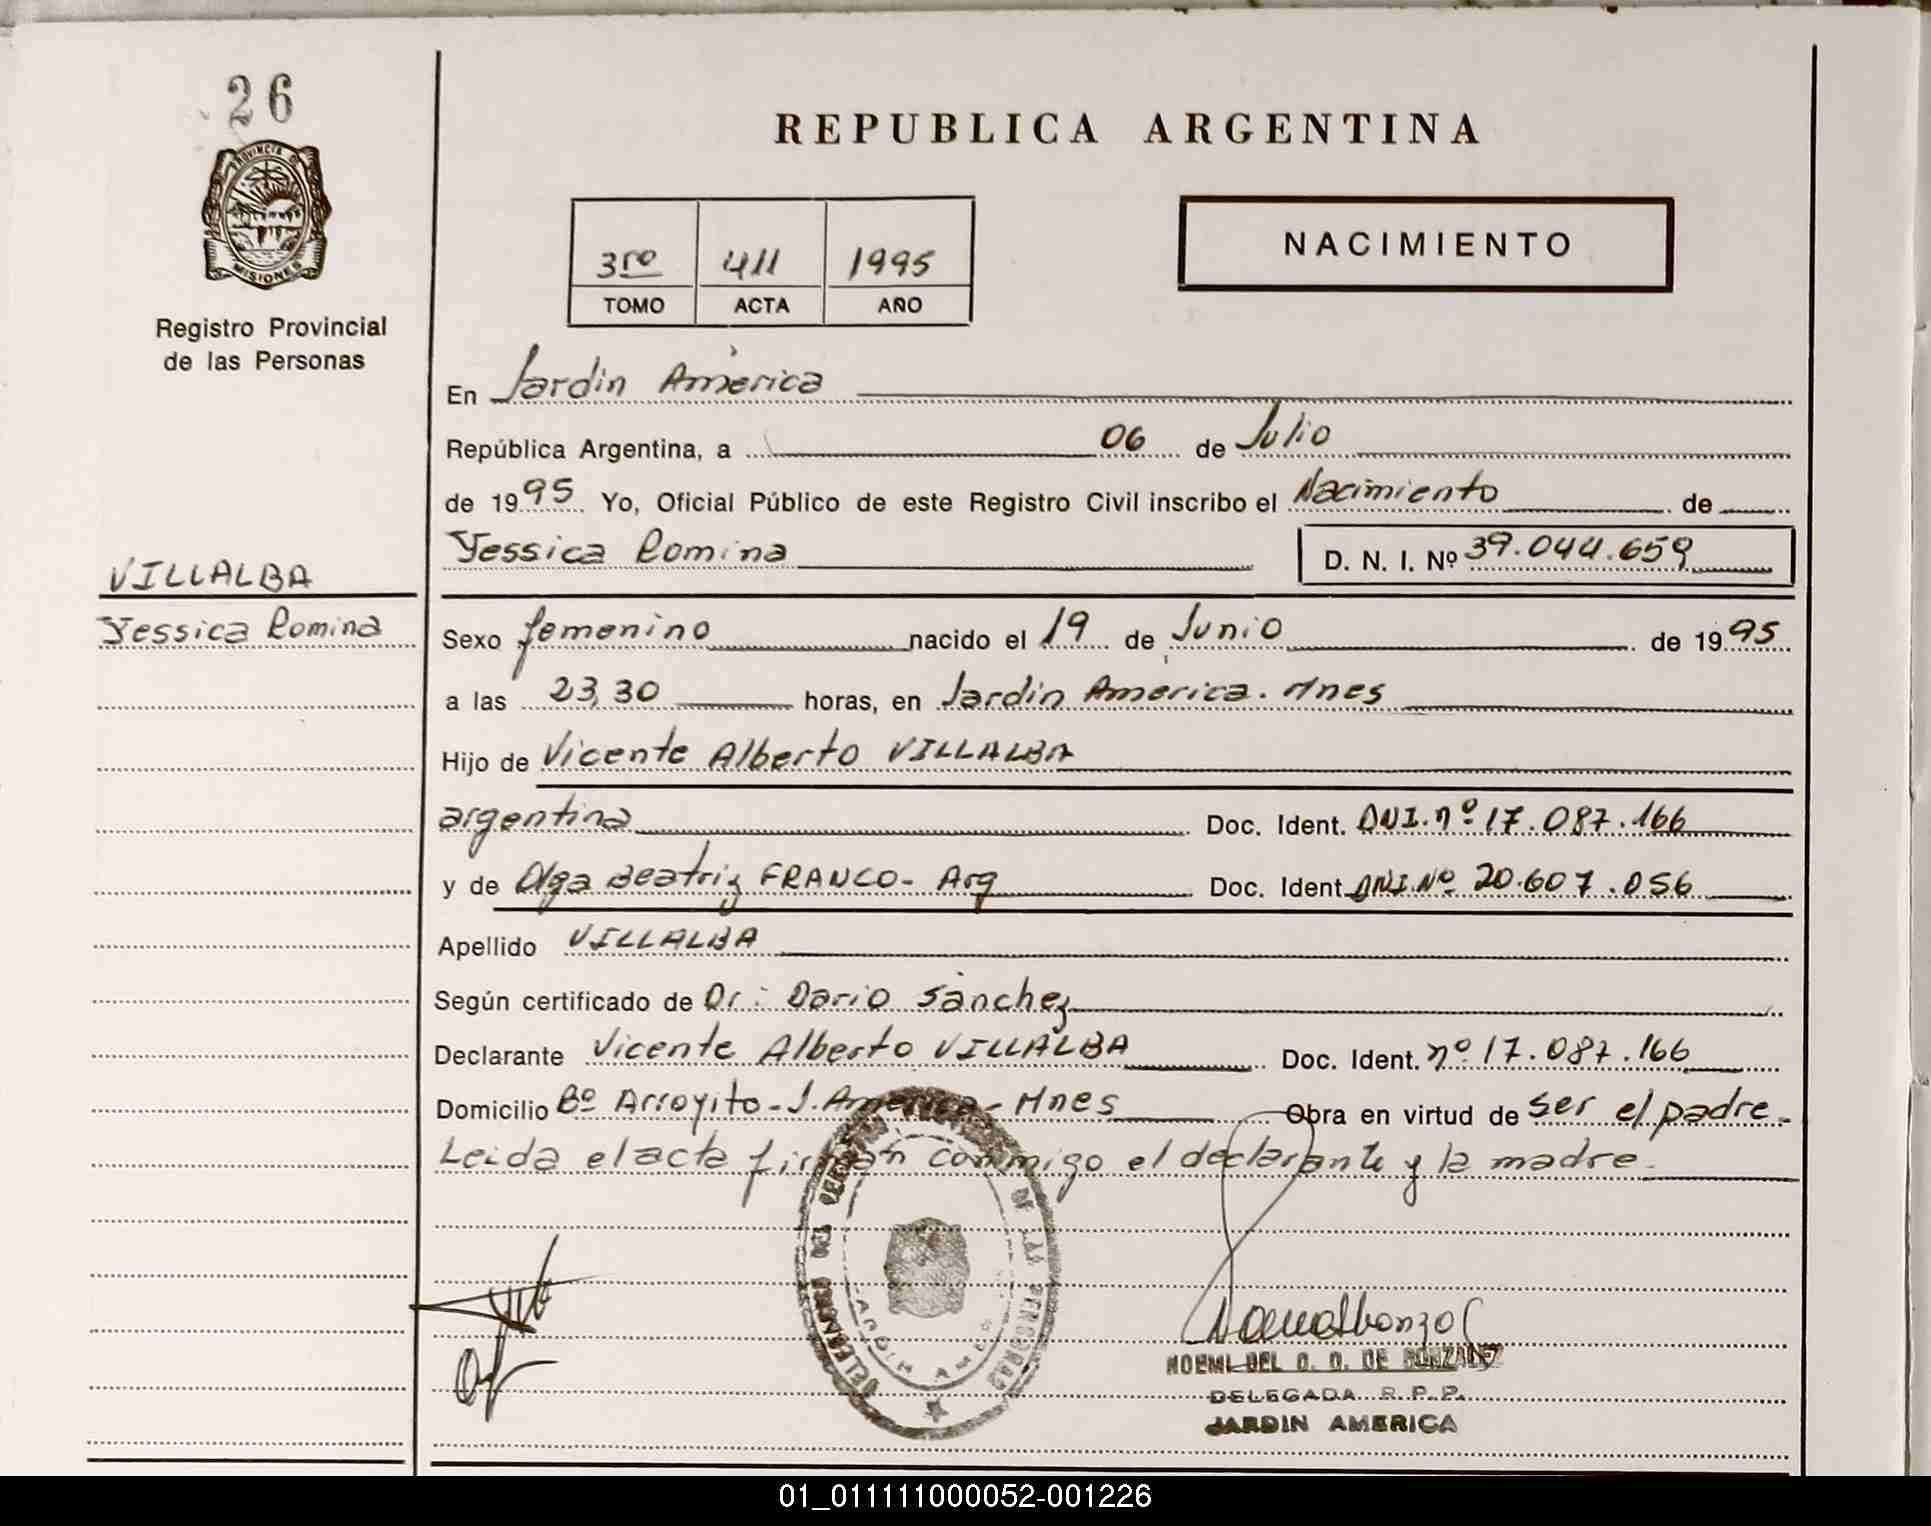 26
PROVINCIA DE
MISIONES
Registro Provincial
de las Personas
VILLALBA
Yessica Romina
REPUBLICA ARGENTINA
3ro 411 1995
TOMO ACTA AÑO
NACIMIENTO
En Jardin América
República Argentina, a 06 de Julio
de 1995 Yo, Oficial Público de este Registro Civil inscribo el Nacimiento de
Yessica Romina D. N. I. Nº 39.044.659
Sexo femenino nacido el 19 de Junio de 1995
a las 23,30 horas, en Jardin America. Mnes
Hijo de Vicente Alberto VILLALBA
argentina Doc. Ident. DNI.nº 17.087.166
y de Olga Beatriz FRANCO- Arg Doc. Ident. DNI.Nº 20.607.056
Apellido VILLALBA
Según certificado de Dr: Dario Sánchez
Declarante Vicente Alberto VILLALBA Doc. Ident. nº 17.087.166
Domicilio Bº Arroyito-J.America-Mnes Obra en virtud de ser el padre.
Leida el acta firman conmigo el declarante y la madre.
DE LAS PERSONAS
JARDIN AME
NOEMI DEL O. D. DE GONZALEZ
DELEGADA R. P. P.
JARDIN AMERICA
01_011111000052-001226